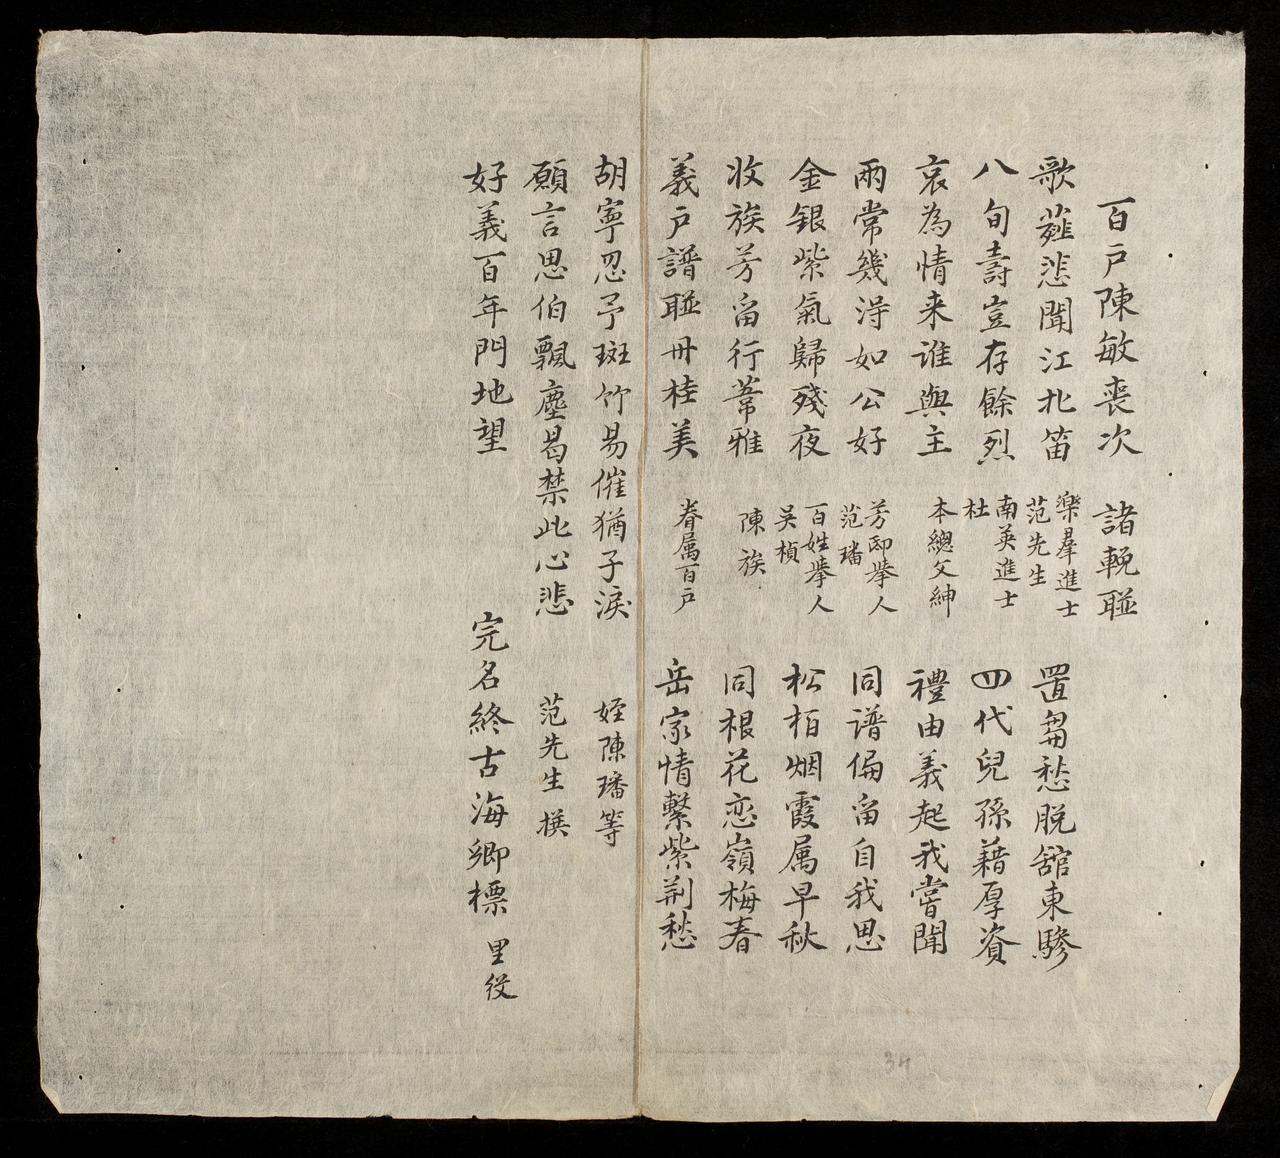 百戶陳敏喪次 諸輓聯
歌薤悲聞江北笛 樂羣進士范先生 置芻愁脱舘東驂
八旬壽豈存餘烈 南英進士杜 四代兒孫藉厚資
哀為情来誰與主 本總文紳 禮由義起我嘗聞
兩常幾淂如公好 芳邸舉人范璠 同譜偏畱自我思
金銀紫氣歸殘夜 百姓舉人吳楨 松柏烟霞属早秋
收族芳畱行葦雅 陳族 同根花恋嶺梅春
義戶譜聯丹桂美 眷属百戶 岳家情繫紫荆愁
胡寧忍予斑竹易催猶子淚 姪陳璠等
願言思伯飄塵曷禁此心悲 范先生撰
好義百年門地望 完名終古海鄉標 里役
34